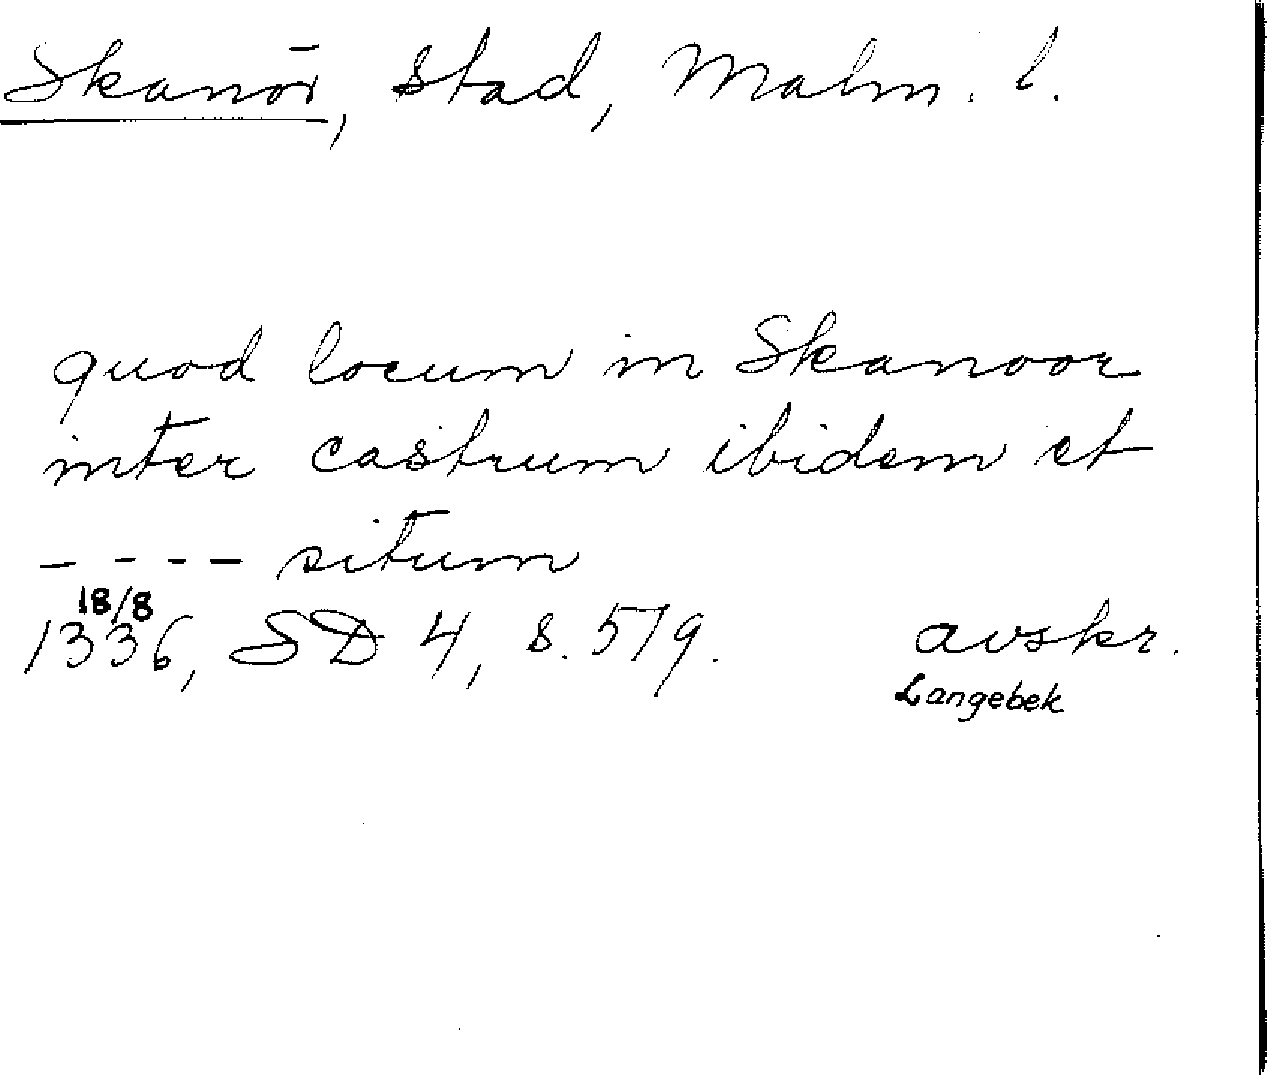 Skanör, stad, Malm. l.
quod locum in Skanoor
inter castrum ibidem et
- - - - situm
18/8
1336, SD 4, s. 579. avskr.
Langebek